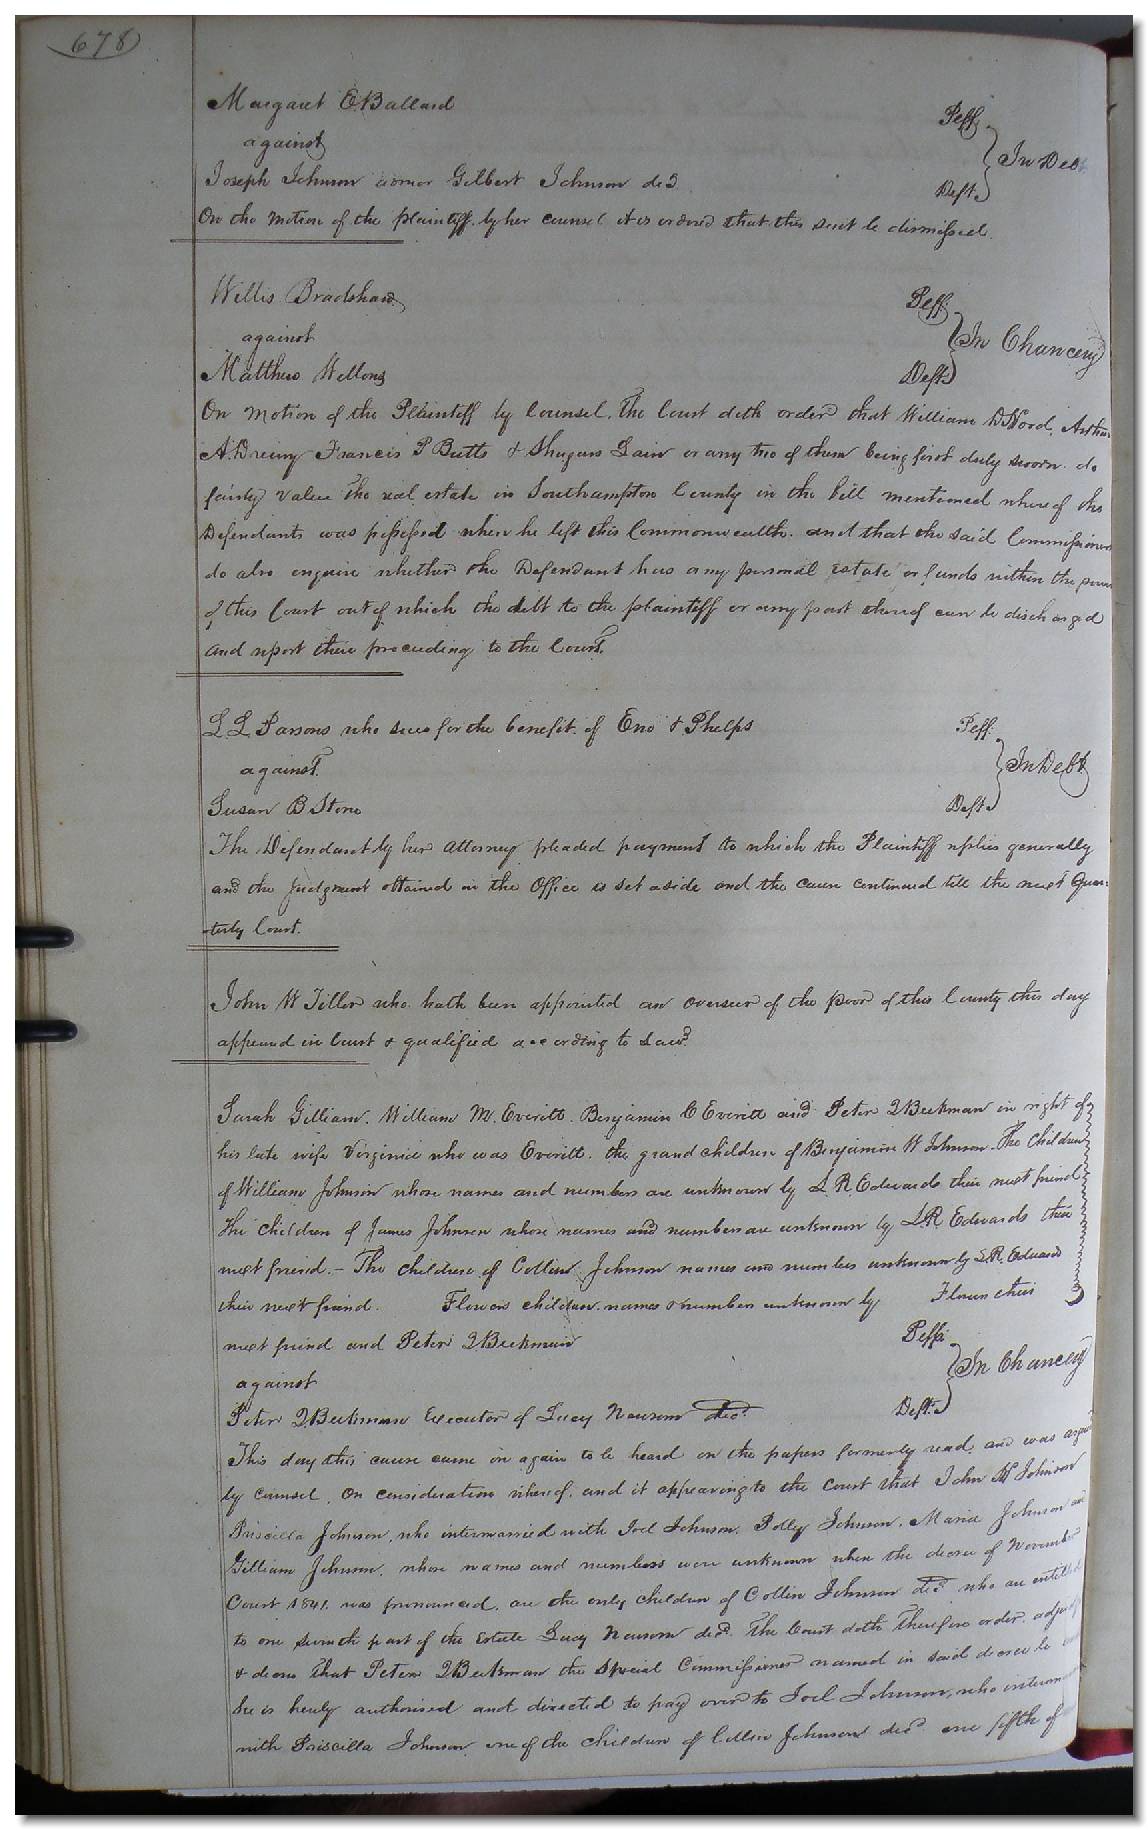 678
Margaret E Ballard Peff
against In Debt
Joseph Johnson admor Gilbert Johnson decd Deft.
On the motion of the plaintiff by her counsel it is ordered that this suit be dismissed.
Willis Bradshaw Peff
against In Chancery
Matthew Wellons Deft.
On motion of the Plaintiff by Counsel. The Court doth order that William D Hood, Arthur
A. Drewry Francis P Butts & Shugars Lain or any two of them being first duly sworn do
fairly value the real estate in Southampton County in the bill mentioned whereof the
Defendants was possessed when he left this Commonwealth. and that the said Commissioners
do also enquire whether the Defendant has any personal estate or funds within the power
of this Court out of which the debt to the plaintiff or any part thereof can be discharged
and report their proceeding to the Court.
L L Parsons who sues for the benefit of Eno & Phelps Peff.
against In Debt
Susan B Stone Deft.
The Defendant by her attorney pleaded payment to which the Plaintiff replies generally
and the Judgment obtained in the Office is set aside and the cause continued till the next Quar
terly Court.
John W Tiller who hath been appointed an overseer of the poor of this County this day
appeared in Court & qualified according to Law
Sarah Gilliam. William M. Everitt. Benjamin C Everitt and Peter J Beekman in right of
his late wife Virginia who was Everitt. the grand children of Benjamin W Johnson. The Children
of William Johnson whose names and numbers are unknown by L R. Edwards their next friend
The children of James Johnson whose names and numbers are unknown by L R Edwards their
next friend. - The children of Collin Johnson names and numbers unknown by L. R. Edwards
their next friend. Flowers children names & number unknown by their
next friend and Peter J Beekman Peffs
against In Chancery
Peter J. Beekman Executor of Lucy Newsom decd Deft.
This day this cause came on again to be heard on the papers formerly read, and was argued
by counsel. On consideration whereof, and it appearing to the Court that John W Johnson
Priscilla Johnson, who intermarried with Joel Johnson, Polley Johnson. Maria Johnson and
Gilliam Johnson, whose names and numbers were unknown when the decree of November
Court 1841. was pronounced, are the only children of Collin Johnson decd who are entitled
to one seventh part of the Estate Lucy Newsom decd. The Court doth therefore order, adjudge
& decree that Peter J Beekman the Special Commissioner named in said decree be
he is hereby authorised and directed to pay over to Joel Johnson, who
with Priscilla Johnson one of the children of Collin Johnson decd one fifth of